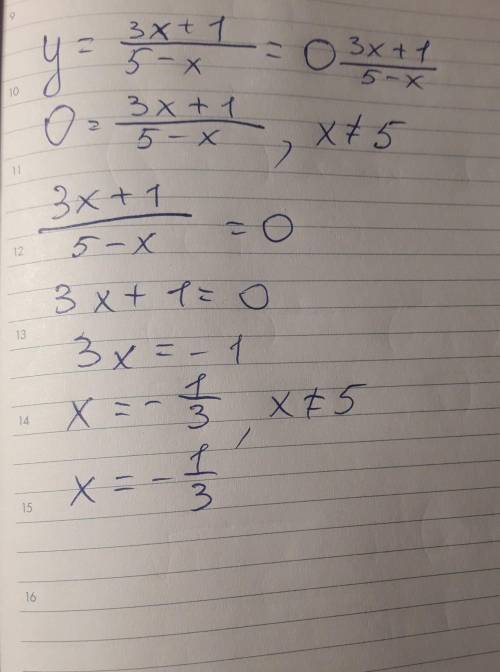 9
y = \frac{3x+1}{5-x} = 0 \frac{3x+1}{5-x}
10
0 = \frac{3x+1}{5-x}, x ≠ 5
11
\frac{3x+1}{5-x} = 0
12
3x + 1 = 0
13
3x = - 1
14
x = - \frac{1}{3}, x ≠ 5
x = - \frac{1}{3}
15
16